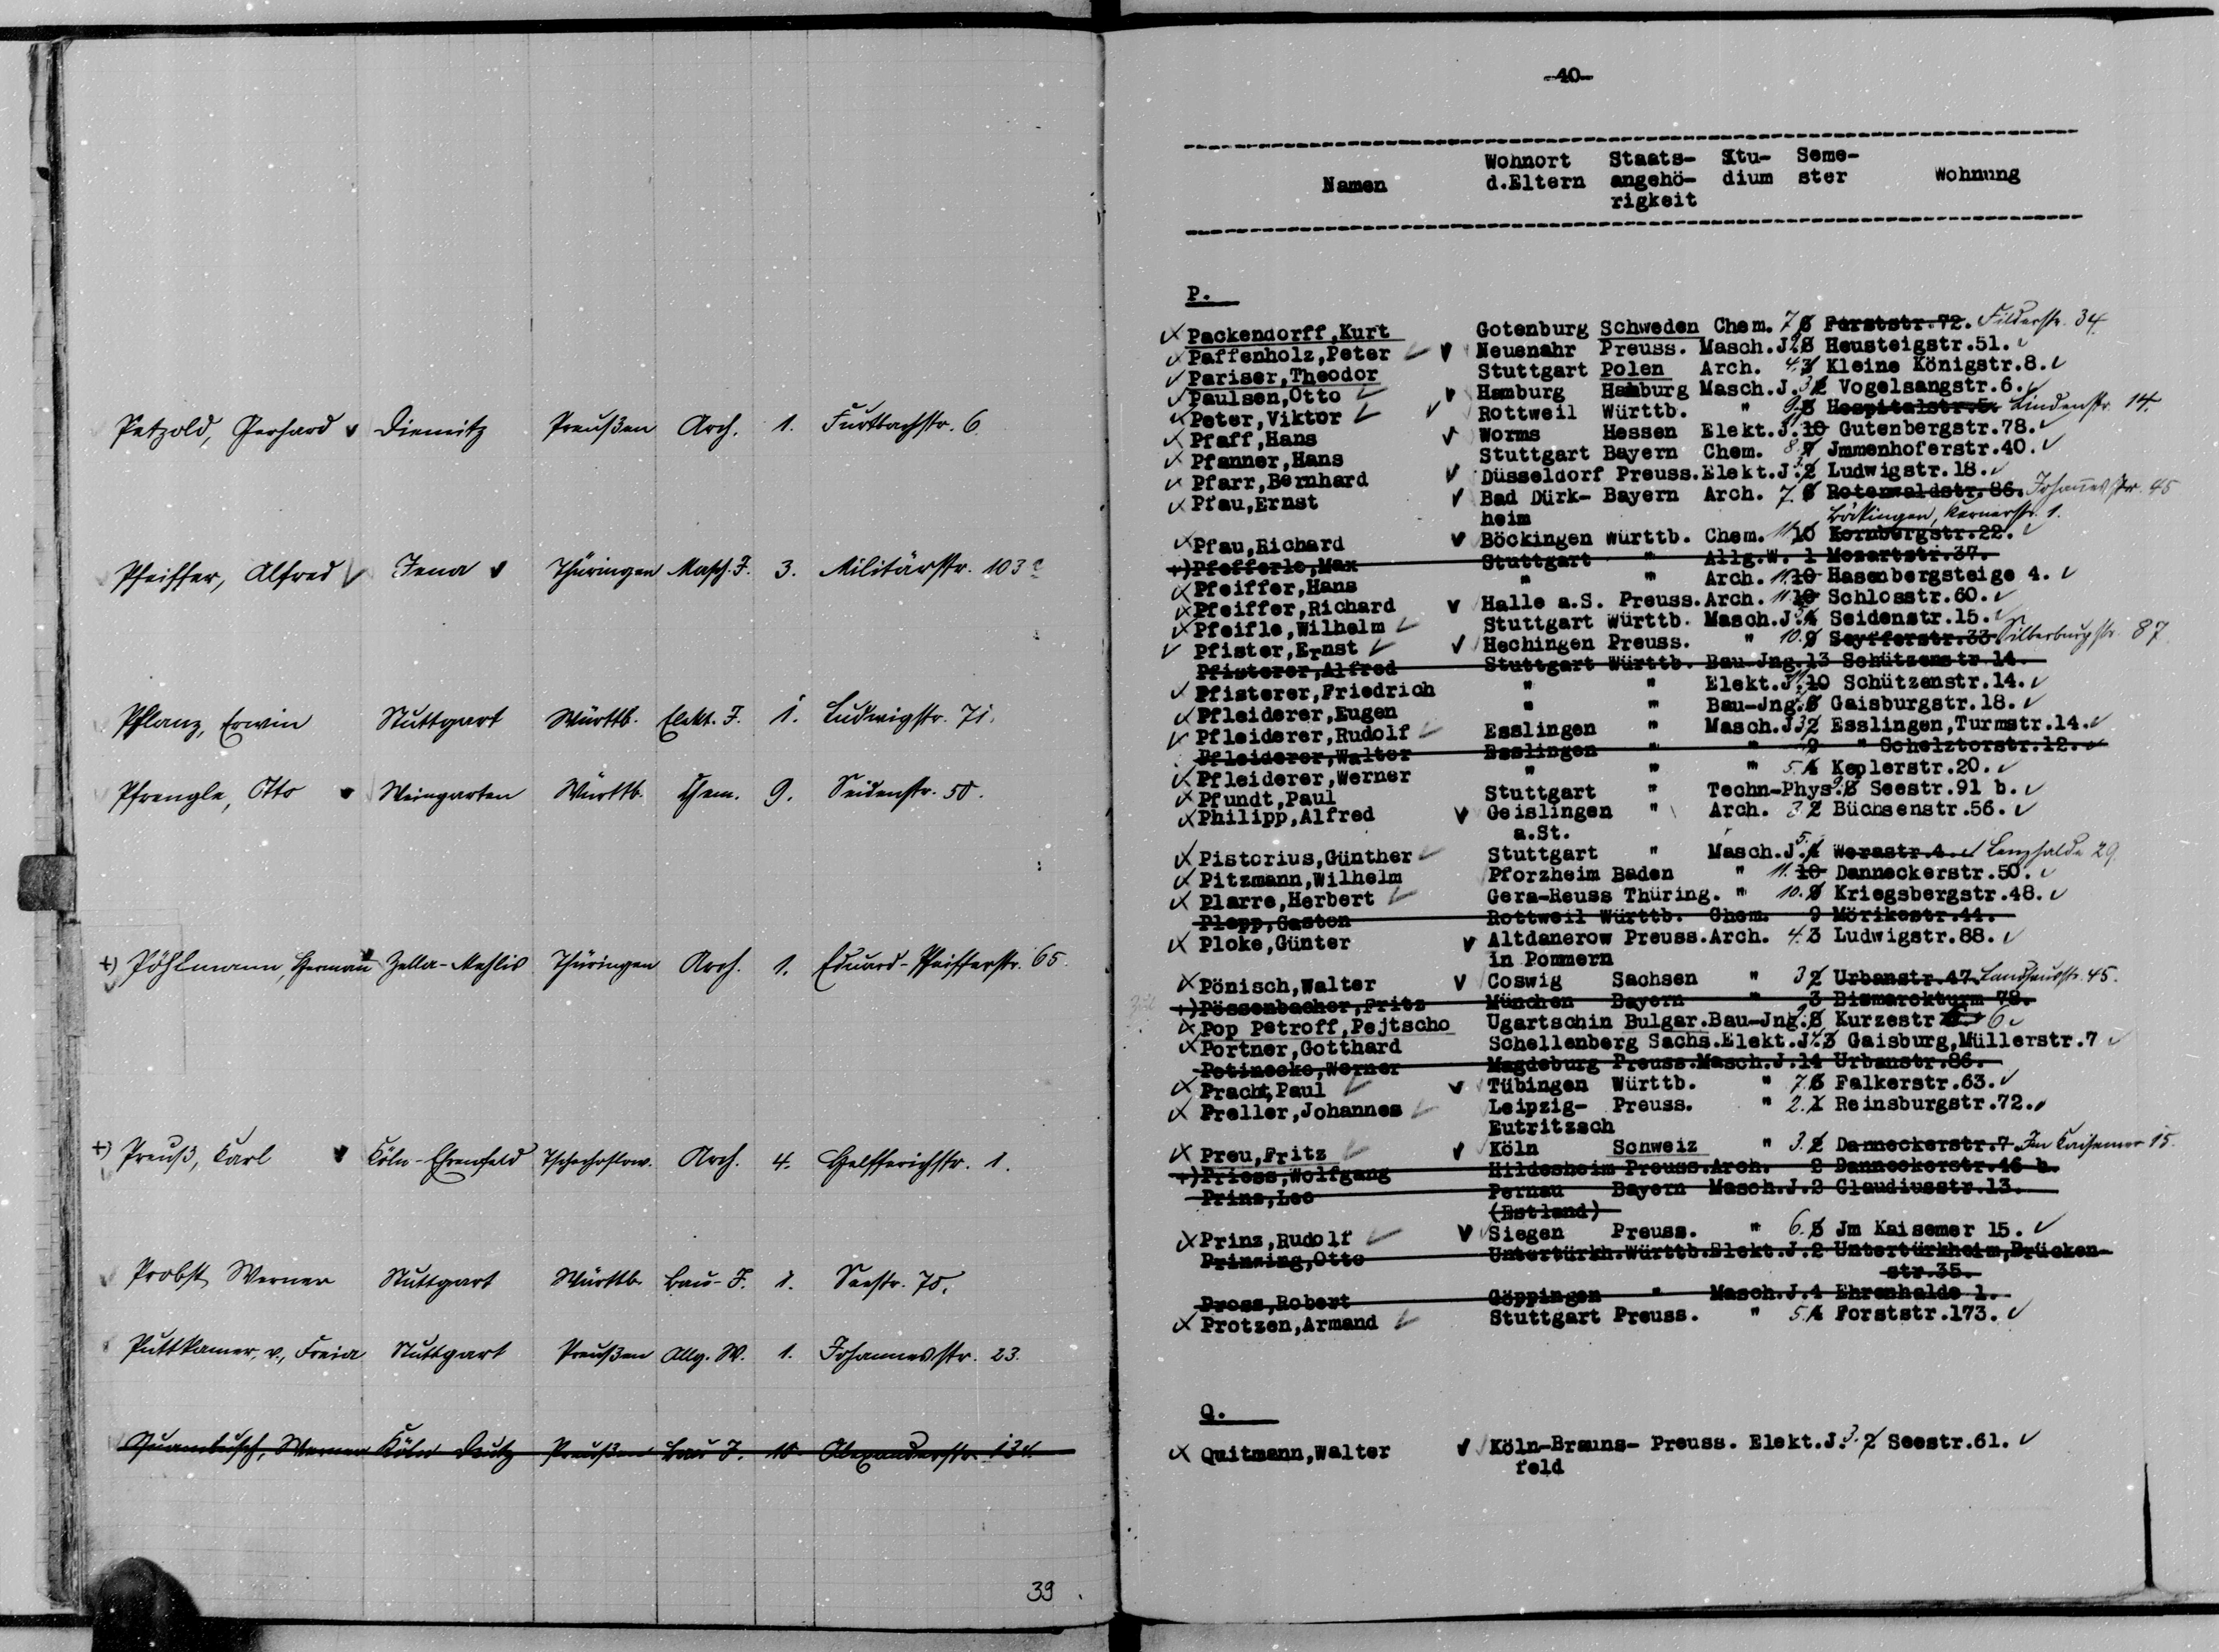 Petzold, Gerhard Diemitz Preußen Arch. 1. Furtbachstr. 6.
Pfeiffer, Alfred Jena Thüringen Masch. J. 3. Militärstr. 103
Pflanz, Erwin Stuttgart Württb. Elekt. J. 1. Ludwigstr. 71.
Pfrengle, Otto Weingarten Württb. Chem. 9. Seidenstr. 50.
+) Pöhlmann, Hermann Zella-Mehlis Thüringen Arch. 1. Eduard-Pfeifferstr. 65.
+) Preuß, Carl Cöln-Ehrenfeld Tschechoslow. Arch. 4. Helfferichstr. 1.
Probst Werner Stuttgart Württb. Bau-J. 1. Seestr. 70.
Puttkamer, v., Freia Stuttgart Preußen Allg. W. 1. Johannesstr. 23.
Quambusch, Werner Köln Deutz Preußen Bau J. 10 Alexanderstr.
39
-40-
Namen Wohnort d.Eltern Staats-angehö-rigkeit Stu-dium Seme-ster Wohnung
P.
Packendorff,Kurt Gotenburg Schweden Chem. 7 6 Forststr.72. Filderstr. 34
Paffenholz,Peter Neuenahr Preuss. Masch.J. 9. 8 Heusteigstr.51.
Pariser,Theodor Stuttgart Polen Arch. 4. 3 Kleine Königstr.8.
Paulsen,Otto Hamburg Hamburg Masch.J. 3 2 Vogelsangstr.6.
Peter,Viktor Rottweil Württb. " 9. 8 Hospitalstr.5. Lindenstr. 14.
Pfaff,Hans Worms Hessen Elekt.J. 10 Gutenbergstr.78.
Pfanner,Hans Stuttgart Bayern Chem. 8. 7 Jmmenhoferstr.40.
Pfarr,Bernhard Düsseldorf Preuss. Elekt.J. 2 Ludwigstr.18.
Pfau,Ernst Bad Dürk- Bayern Arch. 7. 6 Rotenwaldstr.86. Johannesstr. 45
heim Böckingen, Kernerstr. 1.
Pfau,Richard Böckingen Württb. Chem. 11 10 Kornbergstr.22.
+)Pfefferle,Max Stuttgart " Allg.W. 1 Mozartstr.37.
Pfeiffer,Hans " " Arch. 11. 10 Hasenbergsteige 4.
Pfeiffer,Richard Halle a.S. Preuss. Arch. 11 10 Schlosstr.60.
Pfeifle,Wilhelm Stuttgart Württb. Masch.J. 5. 4 Seidenstr.15.
Pfister,Ernst Hechingen Preuss. " 10. 9 Seyfferstr.33 Silberburgstr. 87.
Pfisterer,Alfred Stuttgart Württb. Bau-Jng.13 Schützenstr.14.
Pfisterer,Friedrich " " Elekt.J. 11 10 Schützenstr.14.
Pfleiderer,Eugen " " Bau-Jng. 6 Gaisburgstr.18.
Pfleiderer,Rudolf Esslingen " Masch.J. 3 2 Esslingen,Turmstr.14.
Pfleiderer,Walter Esslingen " " 9 " Schelztorstr.12.
Pfleiderer,Werner " " " 5. 4 Keplerstr.20.
Pfundt,Paul Stuttgart " Techn-Phys. 9. 8 Seestr.91 b.
Philipp,Alfred Geislingen " Arch. 3 2 Büchsenstr.56.
a.St.
Pistorius,Günther Stuttgart " Masch.J. 5. 4 Werastr.4. Lenzhalde 29.
Pitzmann,Wilhelm Pforzheim Baden " 11. 10 Danneckerstr.50.
Plarre,Herbert Gera-Reuss Thüring. " 10. 9 Kriegsbergstr.48.
Plepp,Gaston Rottweil Württb. Chem. 9 Mörikestr.44.
Ploke,Günter Altdanerow Preuss. Arch. 4. 3 Ludwigstr.88.
in Pommern
Pönisch,Walter Coswig Sachsen " 3 2 Urbanstr.47. Landhausstr. 45.
+)Pössenbacher,Fritz München Bayern " 3 Bismarckturm 78.
Pop Petroff,Pejtscho Ugartschin Bulgar. Bau-Jng. 8 Kurzestr 6
Portner,Gotthard Schellenberg Sachs. Elekt.J. 4. 3 Gaisburg,Müllerstr.7
Potinecke,Werner Magdeburg Preuss. Masch.J.14 Urbanstr.86.
Pracht,Paul Tübingen Württb. " 7. 6 Falkerstr.63.
Preller,Johannes Leipzig- Preuss. " 2. 1 Reinsburgstr.72.
Eutritzsch
Preu,Fritz Köln Schweiz " 3. 2 Danneckerstr.7. Im Kaisemer 15.
+)Priess,Wolfgang Hildesheim Preuss. Arch. 2 Danneckerstr.46 b.
Prins,Leo Pernau Bayern Masch.J.2 Claudiusstr.13.
(Estland)
Prinz,Rudolf Siegen Preuss. " 6. 5 Jm Kaisemer 15.
Prinzing,Otto Untertürkh. Württb. Elekt.J.2 Untertürkheim,Brücken-
str.35.
Pross,Robert Göppingen " Masch.J.4 Ehrenhalde 1.
Protzen,Armand Stuttgart Preuss. " 5. 4 Forststr.173.
Q.
Quitmann,Walter Köln-Brauns- Preuss. Elekt.J. 3. 2 Seestr.61.
feld